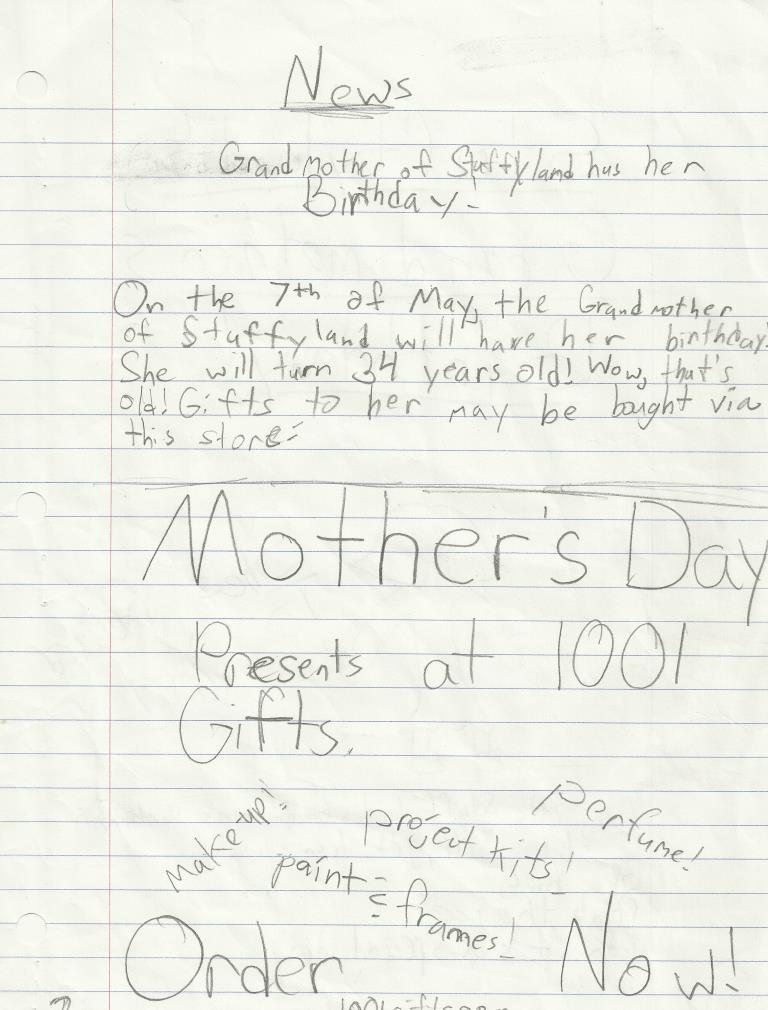 News
Grandmother of Stuffyland has her
Birthday.
On the 7th of May, the Grandmother
of Stuffyland will have her birthday!
She will turn 34 years old! Wow, that's
old! Gifts to her may be bought via
this store:
Mother's Day
Presents at 1001
Gifts.
Makeup!
project kits!
Perfume!
paint & frames!
Order Now!